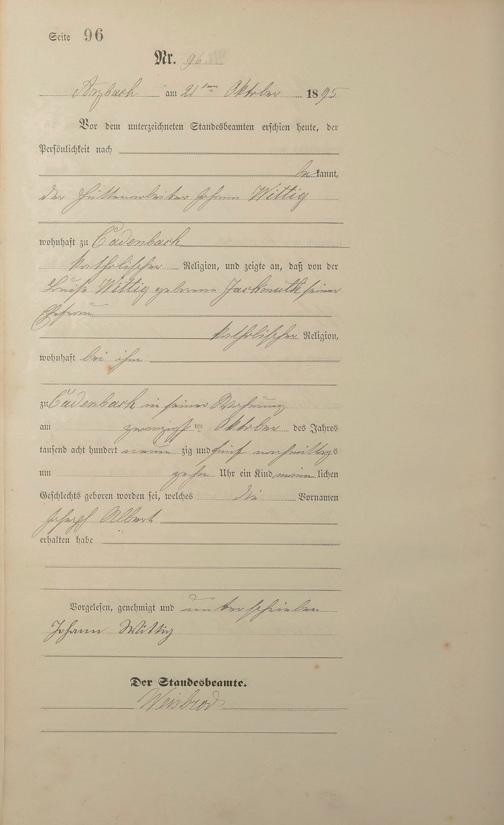 Seite 96
Nr. 96
Arzbach am 21ten Oktober 1895
Vor dem unterzeichneten Standesbeamten erschien heute, der
Persönlichkeit nach
be kannt,
der Hüttenarbeiter Johann Wittig
wohnhaft zu Cadenbach
katholischer Religion, und zeigte an, daß von der
Luise Wittig geborene seiner
Ehefrau
katholischer Religion,
wohnhaft bei ihm
zu Cadenbach in seiner Wohnung
am zwanzigsten Oktober des Jahres
tausend acht hundert neun zig und fünf vormittags
um zehn Uhr ein Kind männ lichen
Geschlechts geboren worden sei, welches die Vornamen
Joseph Albert
erhalten habe
Vorgelesen, genehmigt und unterschrieben
Johann Wittig
Der Standesbeamte.
Weisbrod